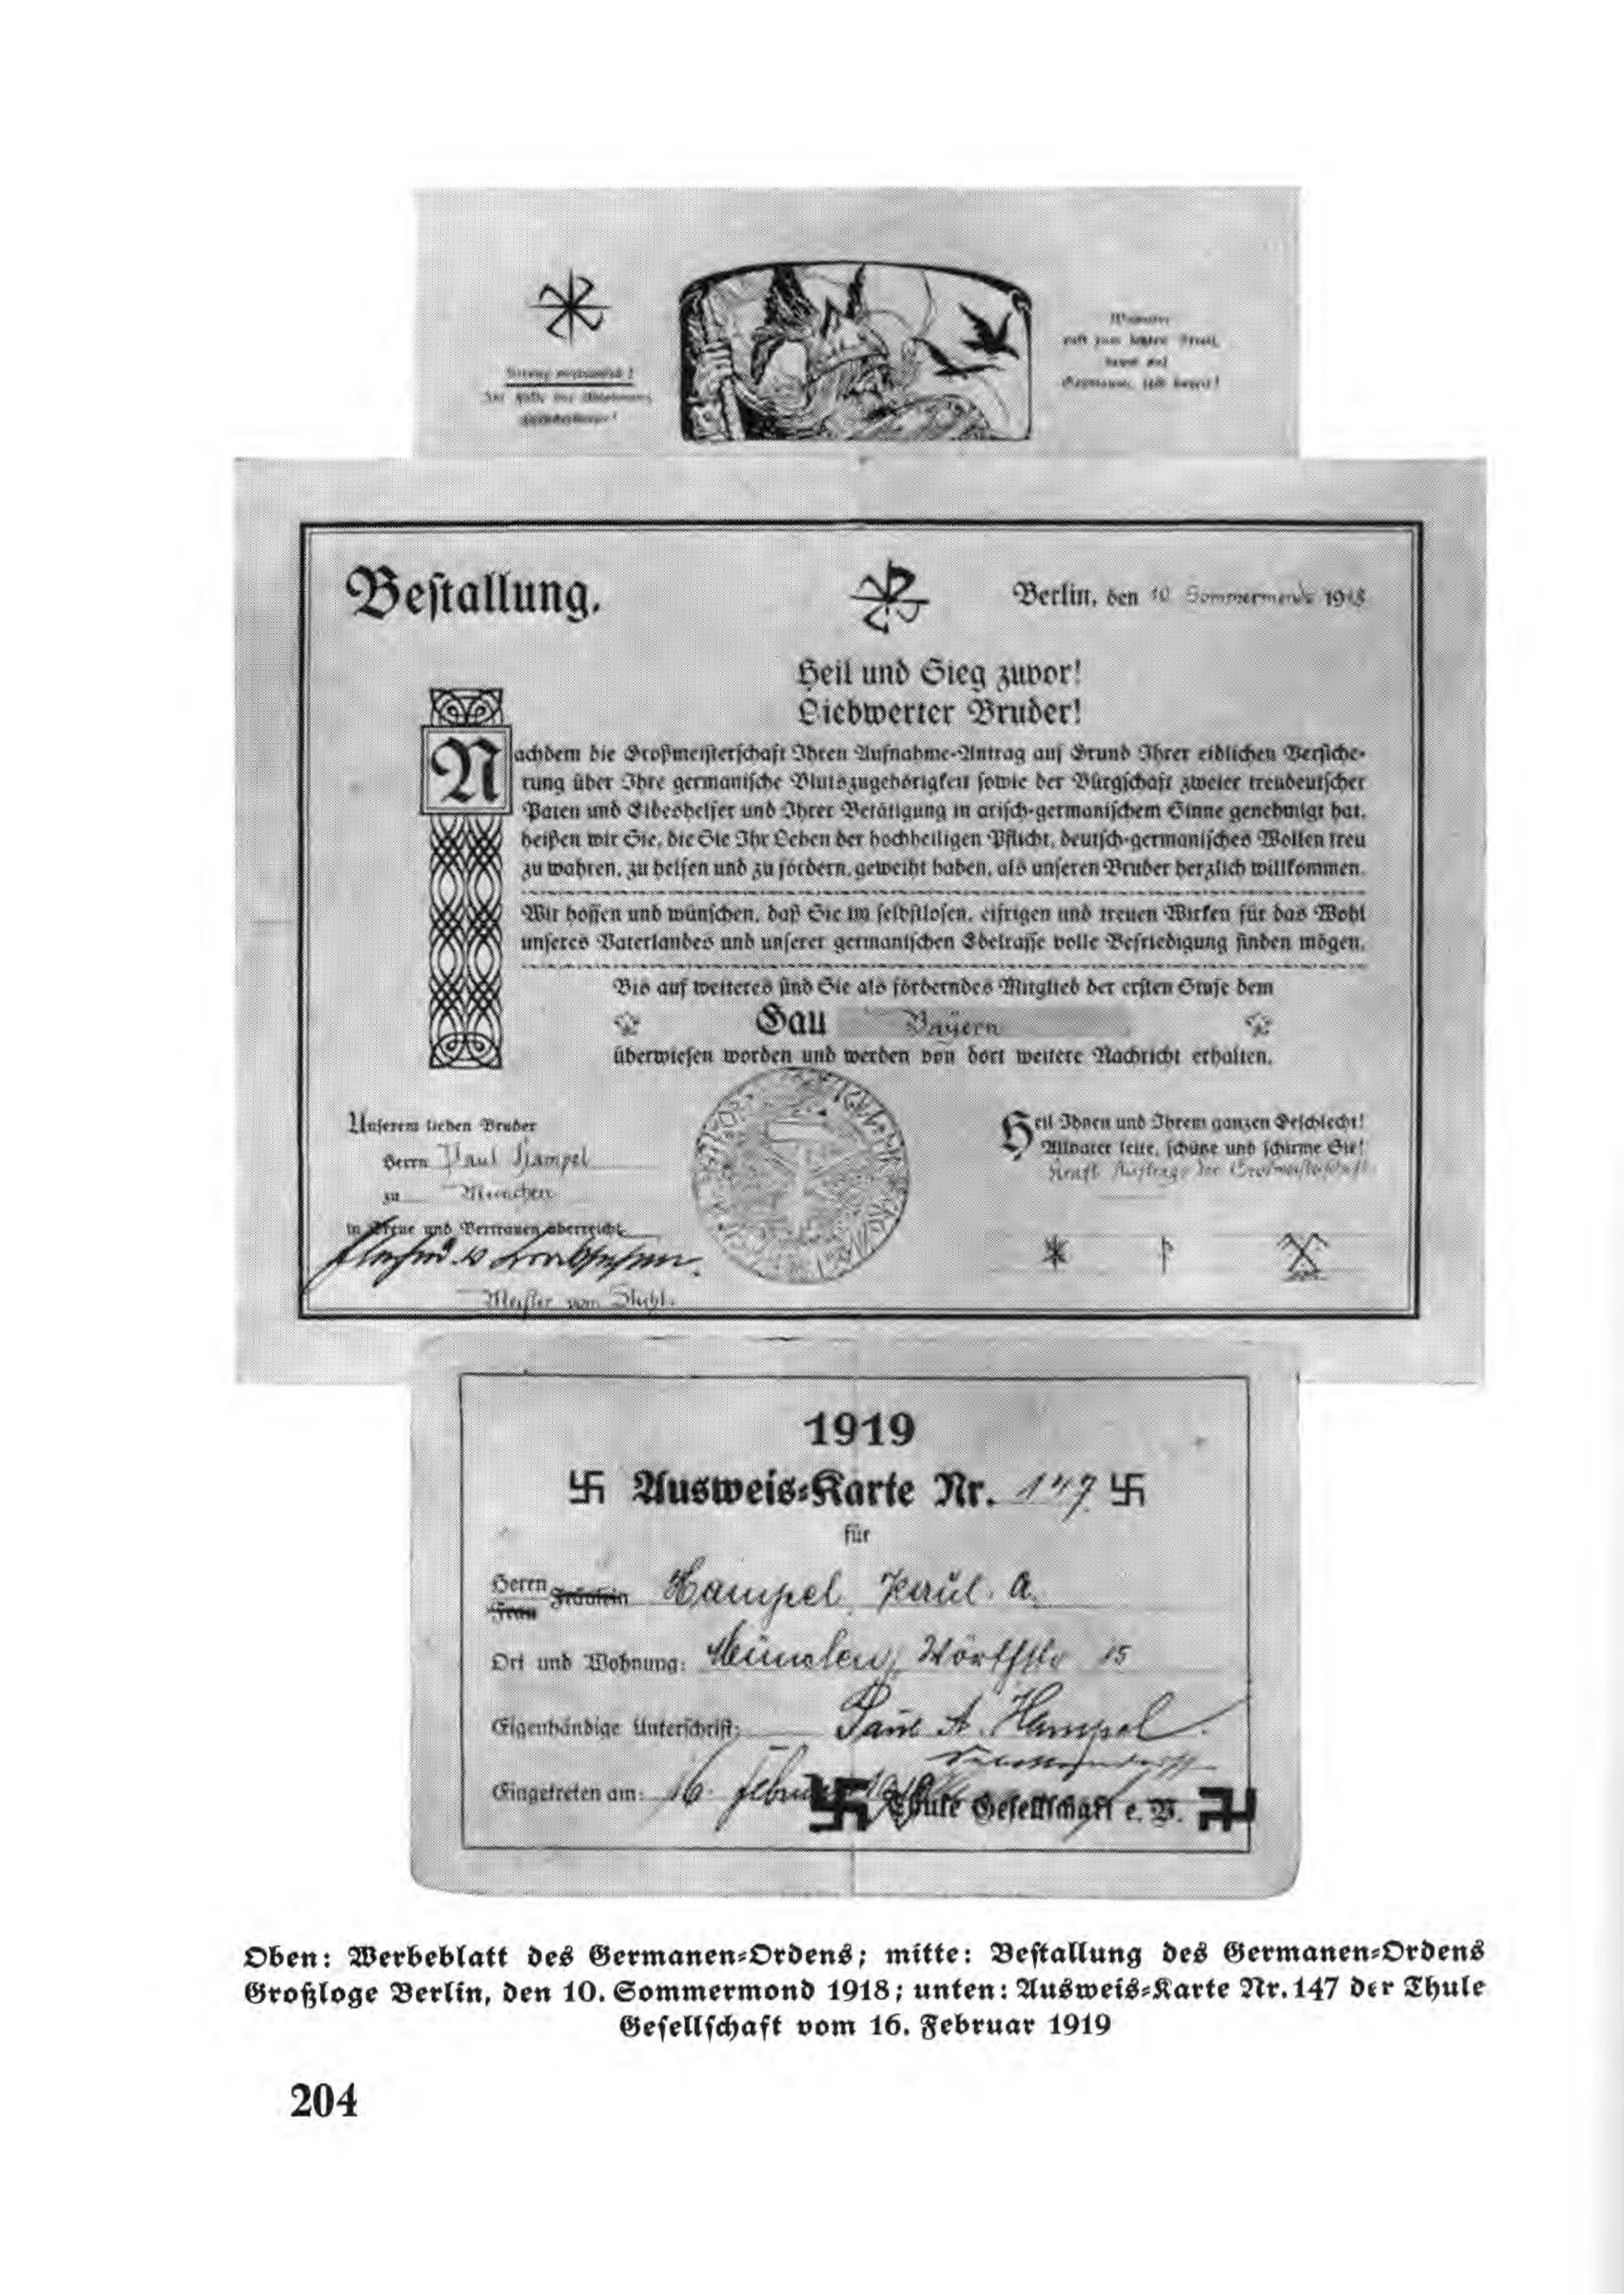 Streng vertraulich!
Im Falle der Ablehnung
zum letzten Streit,
Germanen, seid bereit!
Bestallung.
Berlin, den 10. Sommermond 1918
Heil und Sieg zuvor!
Liebwerter Bruder!
Nachdem die Großmeisterschaft Ihren Aufnahme-Antrag auf Grund Ihrer eidlichen Versiche-
rung über Ihre germanische Blutszugehörigkeit sowie der Bürgschaft zweier treudeutscher
Paten und Eideshelfer und Ihrer Betätigung in arisch-germanischem Sinne genehmigt hat,
heißen wir Sie, die Sie Ihr Leben der hochheiligen Pflicht, deutsch-germanisches Wollen treu
zu wahren, zu helfen und zu fördern, geweiht haben, als unseren Bruder herzlich willkommen.
Wir hoffen und wünschen, daß Sie im selbstlosen, eifrigen und treuen Wirken für das Wohl
unseres Vaterlandes und unserer germanischen Edelrasse volle Befriedigung finden mögen.
Bis auf weiteres sind Sie als förderndes Mitglied der ersten Stufe dem
Gau Bayern
überwiesen worden und werden von dort weitere Nachricht erhalten.
Unserem lieben Bruder
Herrn Paul Hampel
zu München
in Treue und Vertrauen überreicht
Meister vom Stuhl.
Heil Ihnen und Ihrem ganzen Geschlecht!
Allvater leite, schütze und schirme Sie!
Kraft Auftrage der Großmeisterschaft.
1919
卐 Ausweis-Karte Nr. 147 卐
für
Herrn Fräulein Hampel, Paul. A.
Frau
Ort und Wohnung: München, Wörthstr 15
Eigenhändige Unterschrift: Paul A. Hampel
Eingetreten am: 16. Februar 1919
卐 Thule Gesellschaft e. V. 卐
Oben: Werbeblatt des Germanen-Ordens; mitte: Bestallung des Germanen-Ordens
Großloge Berlin, den 10. Sommermond 1918; unten: Ausweis-Karte Nr. 147 der Thule
Gesellschaft vom 16. Februar 1919
204